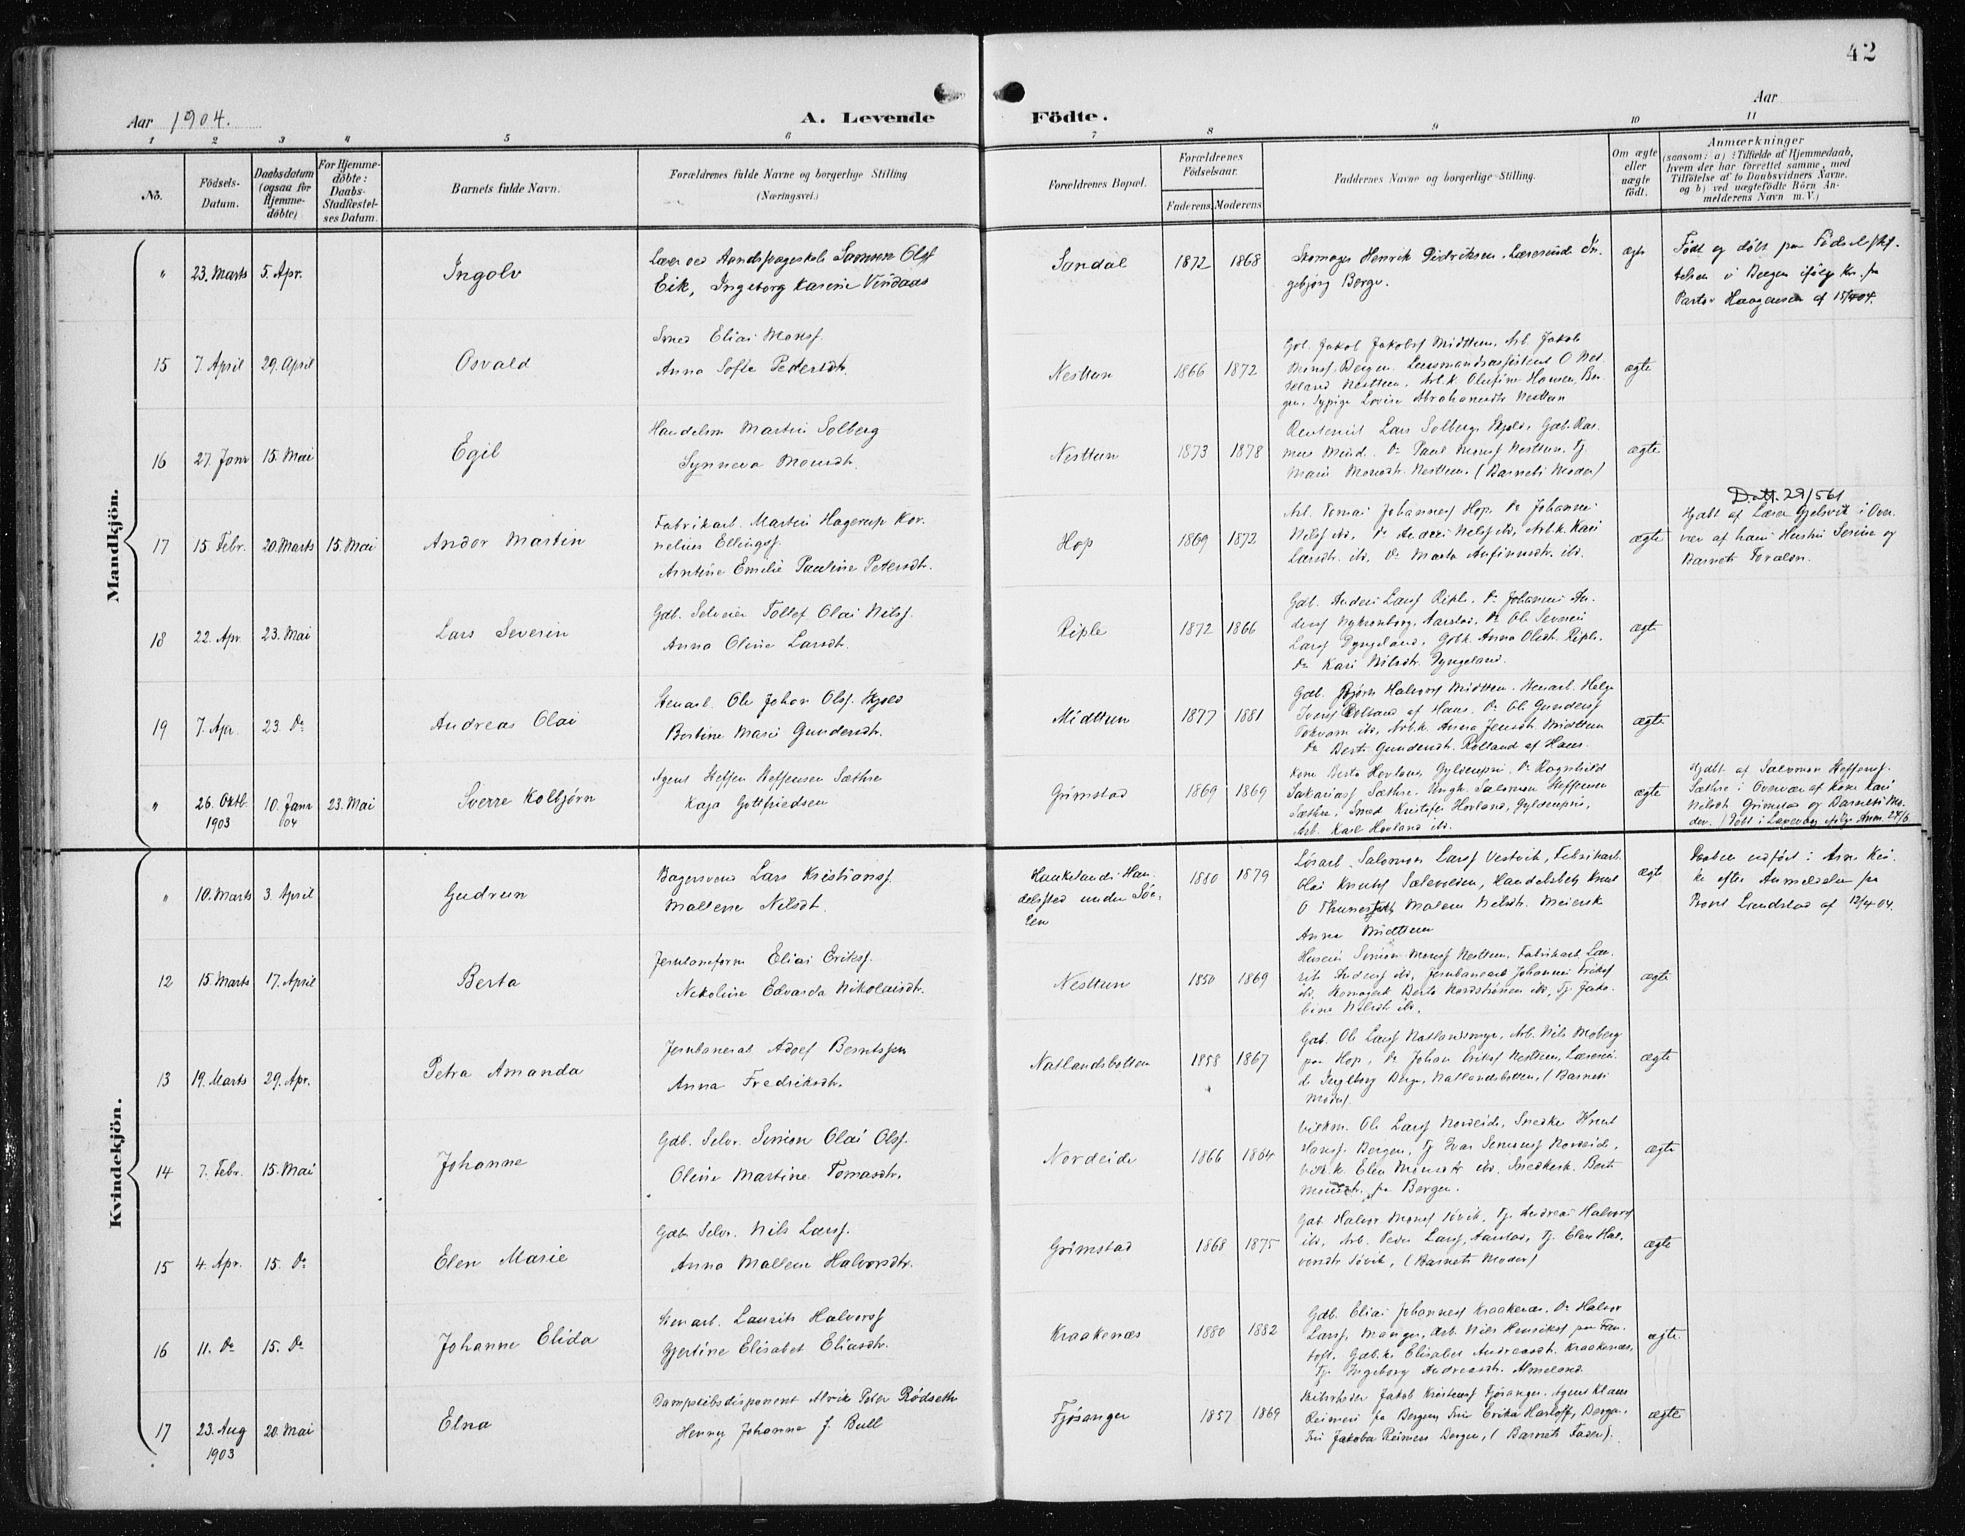 42
Aar 1904.
A. Levende
Födte.
Aar
1 2 3 4 5 6 7 8 9 10 11
No.
Födsels-
Datum.
Daabsdatum
(ogsaa for
Hjemme-
döbte)
For Hjemme-
döbte:
Daabs-
Stadfæstel-
ses Datum.
Barnets fulde Navn.
Forældrenes fulde Navne og borgerlige Stilling
(Næringsvei.)
Forældrenes Bopæl.
Forældrenes
Födselsaar.
Faderens. Moderens.
Faddernes Navne og borgerlige Stilling.
Om ægte
eller
uægte
födt.
Anmærkninger
(saasom: a) i Tilfælde af Hjemmedaab,
hvem der har forrettet samme, med
Tilföielse af to Daabsvidners Navne.
og b) ved uægtefödte Börn An-
melderens Navn m. V.)
Mandkjön.
" 23. Marts 5. Apr. Ingolv
Eik, Ingeborg Karine Vindaas
Sandal 1872 1868
Henrik Didriksen
gebjørg Berge.
ægte
Født og døbt paa Fødselsstif-
telsen i Bergen ifølge
Pastor Haagensen af 15/4 04.
15 7. April 29. April Osvald
Smed Elias Monsf.
Anna Sofie Pedersdtr.
Nesttun 1866 1872
Jakob Jakobsf Midttun, Arb. Jakob
Monsf. Bergen.
Nesttun, Arb.k. Olufine Hansen, Ber-
gen, Sypige Lovise Abrahamsdtr Nesttun
ægte
16 27. Janr 15. Mai Egil
Handelsm Martin Solberg
Synneva Monsdtr.
Nesttun 1873 1878
Lars Solberg
Do Paul Monsf Nesttun, Tj.
Marie Monsdtr. Nesttun. (Barnets Moder)
ægte
17 15. Febr. 20. Marts 15. Mai Andor Martin
Fabrikarb. Martin Hagerup Kor-
nelius Ellingsf.
Arntine Emilie Pauline Petersdtr.
Hop 1869 1872
Arb. Tomas Johannesf Hop, Do Johannes
Nilsf ib., Do Anders Nilsf ib, Arb.k. Kari
Larsdtr. ib, Do Marta Anfinnsdtr. ib.
ægte
Døtt. 29/5 61
Hjdbt af Lærer Gjelsvik i Over-
vær af hans Hustru Serine og
Barnets Forældre.
18 22. Apr. 23. Mai Lars Severin
Gdb. Selveier Tollef Olai Nilsf.
Anna Oline Larsdtr.
Riple 1872 1866
Gdb. Anders Larsf Riple, Do Johannes An-
dersf Nykronborg, Aarstad, Do Ole Severin
Larsf Dyngeland, Gdbk. Anna Olsdtr. Riple,
Do Kari Nilsdtr. Dyngeland.
ægte
19 7. Apr. 23. Do Andreas Olai
Stenarb. Ole Johan Olsf. Skjold
Bertine Marie Gundersdtr.
Midttun 1877 1881
Gdb. Bjørn Halvorsf Midttun, Stenarb. Helge
Iversf Rolland af Haus, Do Ole Gundersf
ib, Arb.k. Anna Jensdtr Midttun
Do Berta Gundersdtr. Rolland af Haus.
ægte
" 26. Oktb.
1903 10. Janr
04 23. Mai Sverre Kolbjørn
Agent Steffen Steffensen Sæthre
Kaja Gottfriedsen
Grimstad 1869 1869
Kone Berta Hovland, Gyldenpris, Do Ragnhild
Sakariasf Sæthre, Ungk. Salomon Steffensen
Sæthre, Smed Kristofer Hovland, Gyldenpris,
Arb. Karl Hovland ib.
ægte
Hjdbt. af Salomon Steffensf.
Sæthre i Overvær af Kone Kari
Nilsdtr Grimstad og Barnets Mo-
der.
Kvindekjön.
" 10. Marts 3. April Gudrun
Bagersvend Lars Kristiansf.
Mallene Nilsdt.
Haukelands Han-
delssted under Sør-
len
1880 1879
Salomon Larsf Vestvik, Fabrikarb.
Olai Knutsf Salevolden, Handelsbetj Knut
O Thunestvedt, Malene Nilsdtr. Meierske
Anna Midttun
ægte
Daaben udført i Arne Kir-
ke efter Anmeldelse fra
Provst Landstad af 12/4 04.
12 15. Marts 17. April Berta
Elias Eriksf.
Nikoline Edvarda Nikolaisdtr.
Nesttun 1850 1869
Simon Monsf Nesttun, Fabrikarb. Lau-
rits Andersf ib, Jernbanearb Johannes Eriksf
ib, Berta Nordstrønen ib, Tj. Jako-
bine Nilsdtr ib.
ægte
13 19. Marts 29. Apr. Petra Amanda
Jernbanearb Adolf Berntsen
Anna Fredriksdtr.
Natlandsbotten 1858 1867
Gdb. Ole Larsf Natlandsmyr, Arb. Nils Moberg
paa Hop, Do Johan Eriksf Nesttun, Lærerin-
de Ingeborg Berge, Natlandsbotten, (Barnets
Moder).
ægte
14 7. Febr. 15. Mai Johanne
Gdb. Selv. Simon Olai Olsf.
Oline Martine Tomasdtr.
Nordeide 1866 1864
Ole Larsf Nordeide, Snedker Knut
Hansf. Bergen, Tj Ivar Simonsf Nordeide,
Elen Monsdtr ib. Snedkersk. Berta
Monsdtr. fra Bergen.
ægte
15 4. Apr. 15. Do Elen Marie
Gdb. Selv. Nils Larsf.
Anna Mallene Halvorsdtr.
Grimstad 1868 1875
Gdb Halvor Monsf Søvik, Tj Andreas Halvorsf
ib, Arb. Peder Larsf, Aarstad, Tj. Elen Hal-
vorsdtr Søvik, (Barnets Moder)
ægte
16 11. Do 15. Do Johanne Elida
Stenarb. Laurits Halvorsf
Gjertine Elisabet Eliasdtr.
Kraakenæs 1880 1882
Gdb. Elias Johannesf Kraakenæs, Do Halvor
Larsf, Manger, Arb. Nils Henriksf paa Fan-
toft, Gdb.k. Elisabet Andreasdt. Kraakenæs,
Tj. Ingeborg Andreasdt. Almeland.
ægte
17 23. Aug
1903 20. Mai Elna
Dampskibsdisponent Alvik Peter Rødseth
Henny Johanne J. Bull
Fjøsanger 1857 1869
Jakob Kristensf Fjøsanger, Agent Klaus
Reimers fra Bergen, Fru Erika Harloff, Bergen,
Fru Jakoba Reimers Bergen, (Barnets Fader).
ægte